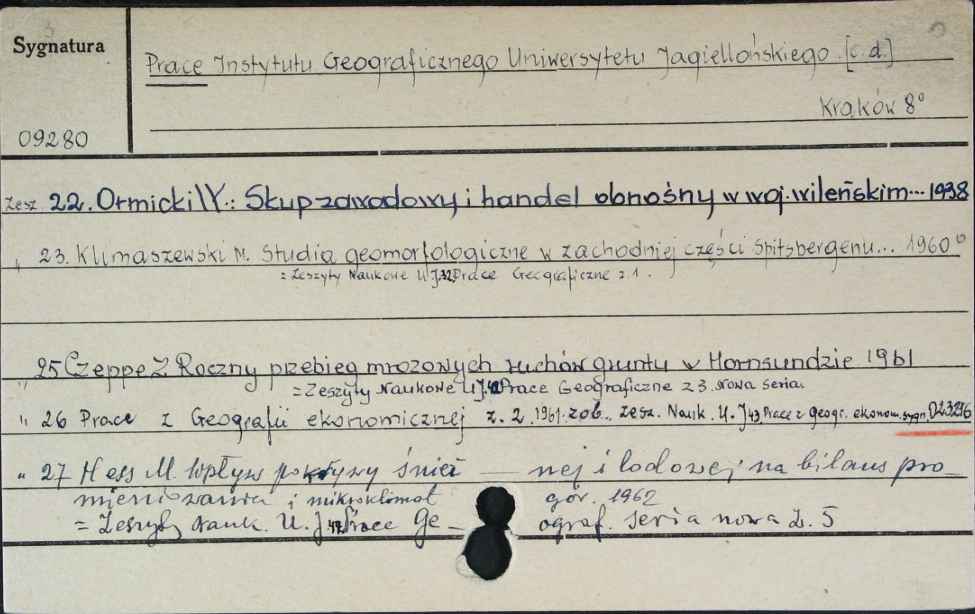 Sygnatura
Prace Instytutu Geograficznego Uniwersytetu Jagiellońskiego [c. d.]
Kraków 8°
09280
Zesz 22. Ormicki W.: Skup zawodowy i handel obnośny w woj. wileńskim... 1938
" 23. Klimaszewski M. Studia geomorfologiczne w zachodniej części Spitsbergenu... 1960
= Zeszyty Naukowe UJ. 32 Prace Geograficzne z 1.
" 25 Czeppe Z Roczny przebieg mrozowych ruchów gruntu w Hornsundzie 1961
= Zeszyty Naukowe UJ. 42 Prace Geograficzne z 3. Nowa seria.
" 26 Prace z Geografii ekonomicznej z. 2. 1961. zob. zesz. Nauk. U. J 43. Prace z geogr. ekonom. sygn. 023296
" 27 Hess M. Wpływ pokrywy śnież — nej i lodowej na bilans pro-
mieniowania i mikroklimat gór. 1962
= Zeszyty Nauk. U. J 47. Prace Ge — ograf. Seria nowa Z. 5